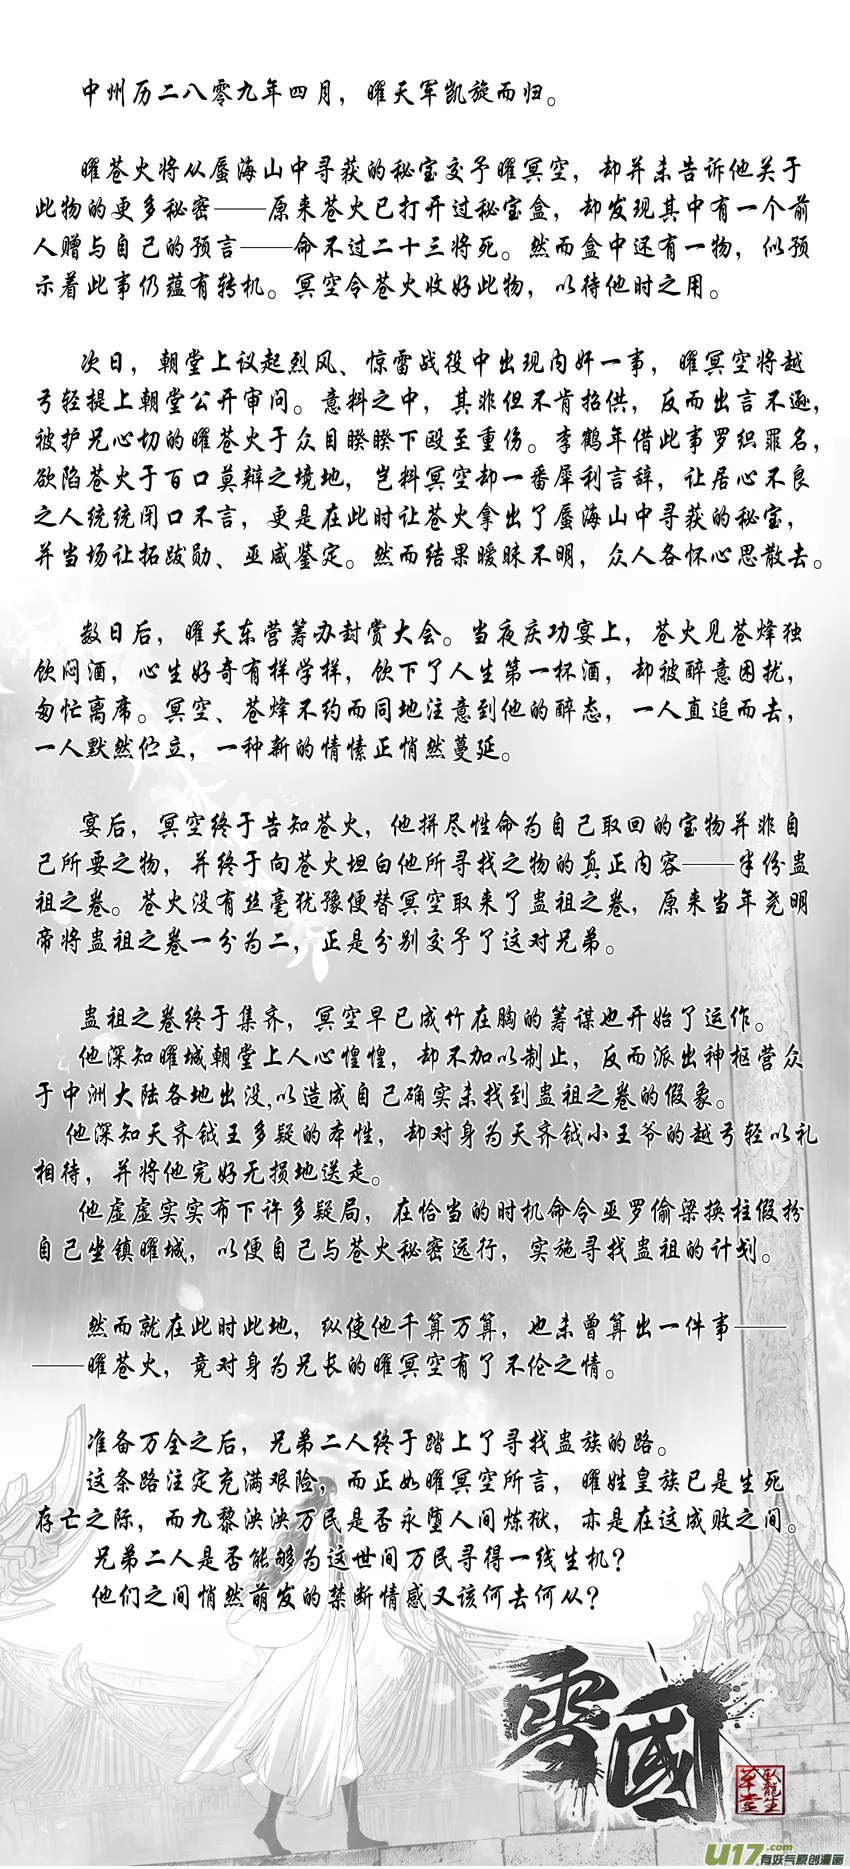 中州历二八零九年四月，曜天军凯旋而归。
曜苍火将从蜃海山中寻获的秘宝交予曜冥空，却并未告诉他关于
此物的更多秘密——原来苍火已打开过秘宝盒，却发现其中有一个前
人赠与自己的预言——命不过二十三将死。然而盒中还有一物，似预
示着此事仍蕴有转机。冥空令苍火收好此物，以待他时之用。
次日，朝堂上议起烈风、惊雷战役中出现内奸一事，曜冥空将越
兮轻提上朝堂公开审问。意料之中，其非但不肯招供，反而出言不逊，
被护兄心切的曜苍火于众目睽睽下殴至重伤。李鹤年借此事罗织罪名，
欲陷苍火于百口莫辩之境地，岂料冥空却一番犀利言辞，让居心不良
之人统统闭口不言，更是在此时让苍火拿出了蜃海山中寻获的秘宝，
并当场让拓跋勋、亚咸鉴定。然而结果暧昧不明，众人各怀心思散去。
数日后，曜天东营筹办封赏大会。当夜庆功宴上，苍火见苍烽独
饮闷酒，心生好奇有样学样，饮下了人生第一杯酒，却被醉意困扰，
匆忙离席。冥空、苍烽不约而同地注意到他的醉态，一人直追而去，
一人默然伫立，一种新的情愫正悄然蔓延。
宴后，冥空终于告知苍火，他拼尽性命为自己取回的宝物并非自
己所要之物，并终于向苍火坦白他所寻找之物的真正内容——半份蛊
祖之卷。苍火没有丝毫犹豫便替冥空取来了蛊祖之卷，原来当年尧明
帝将蛊祖之卷一分为二，正是分别交予了这对兄弟。
蛊祖之卷终于集齐，冥空早已成竹在胸的筹谋也开始了运作。
他深知曜城朝堂上人心惶惶，却不加以制止，反而派出神枢营众
于中洲大陆各地出没,以造成自己确实未找到蛊祖之卷的假象。
他深知天齐钺王多疑的本性，却对身为天齐钺小王爷的越兮轻以礼
相待，并将他完好无损地送走。
他虚虚实实布下许多疑局，在恰当的时机命令亚罗偷梁换柱假扮
自己坐镇曜城，以便自己与苍火秘密远行，实施寻找蛊祖的计划。
然而就在此时此地，纵使他千算万算，也未曾算出一件事——
——曜苍火，竟对身为兄长的曜冥空有了不伦之情。
准备万全之后，兄弟二人终于踏上了寻找蛊族的路。
这条路注定充满艰险，而正如曜冥空所言，曜姓皇族已是生死
存亡之际，而九黎泱泱万民是否永堕人间炼狱，亦是在这成败之间。
兄弟二人是否能够为这世间万民寻得一线生机？
他们之间悄然萌发的禁断情感又该何去何从？
雪國
卧龍生
草莹
U17.com
有妖气原创漫画